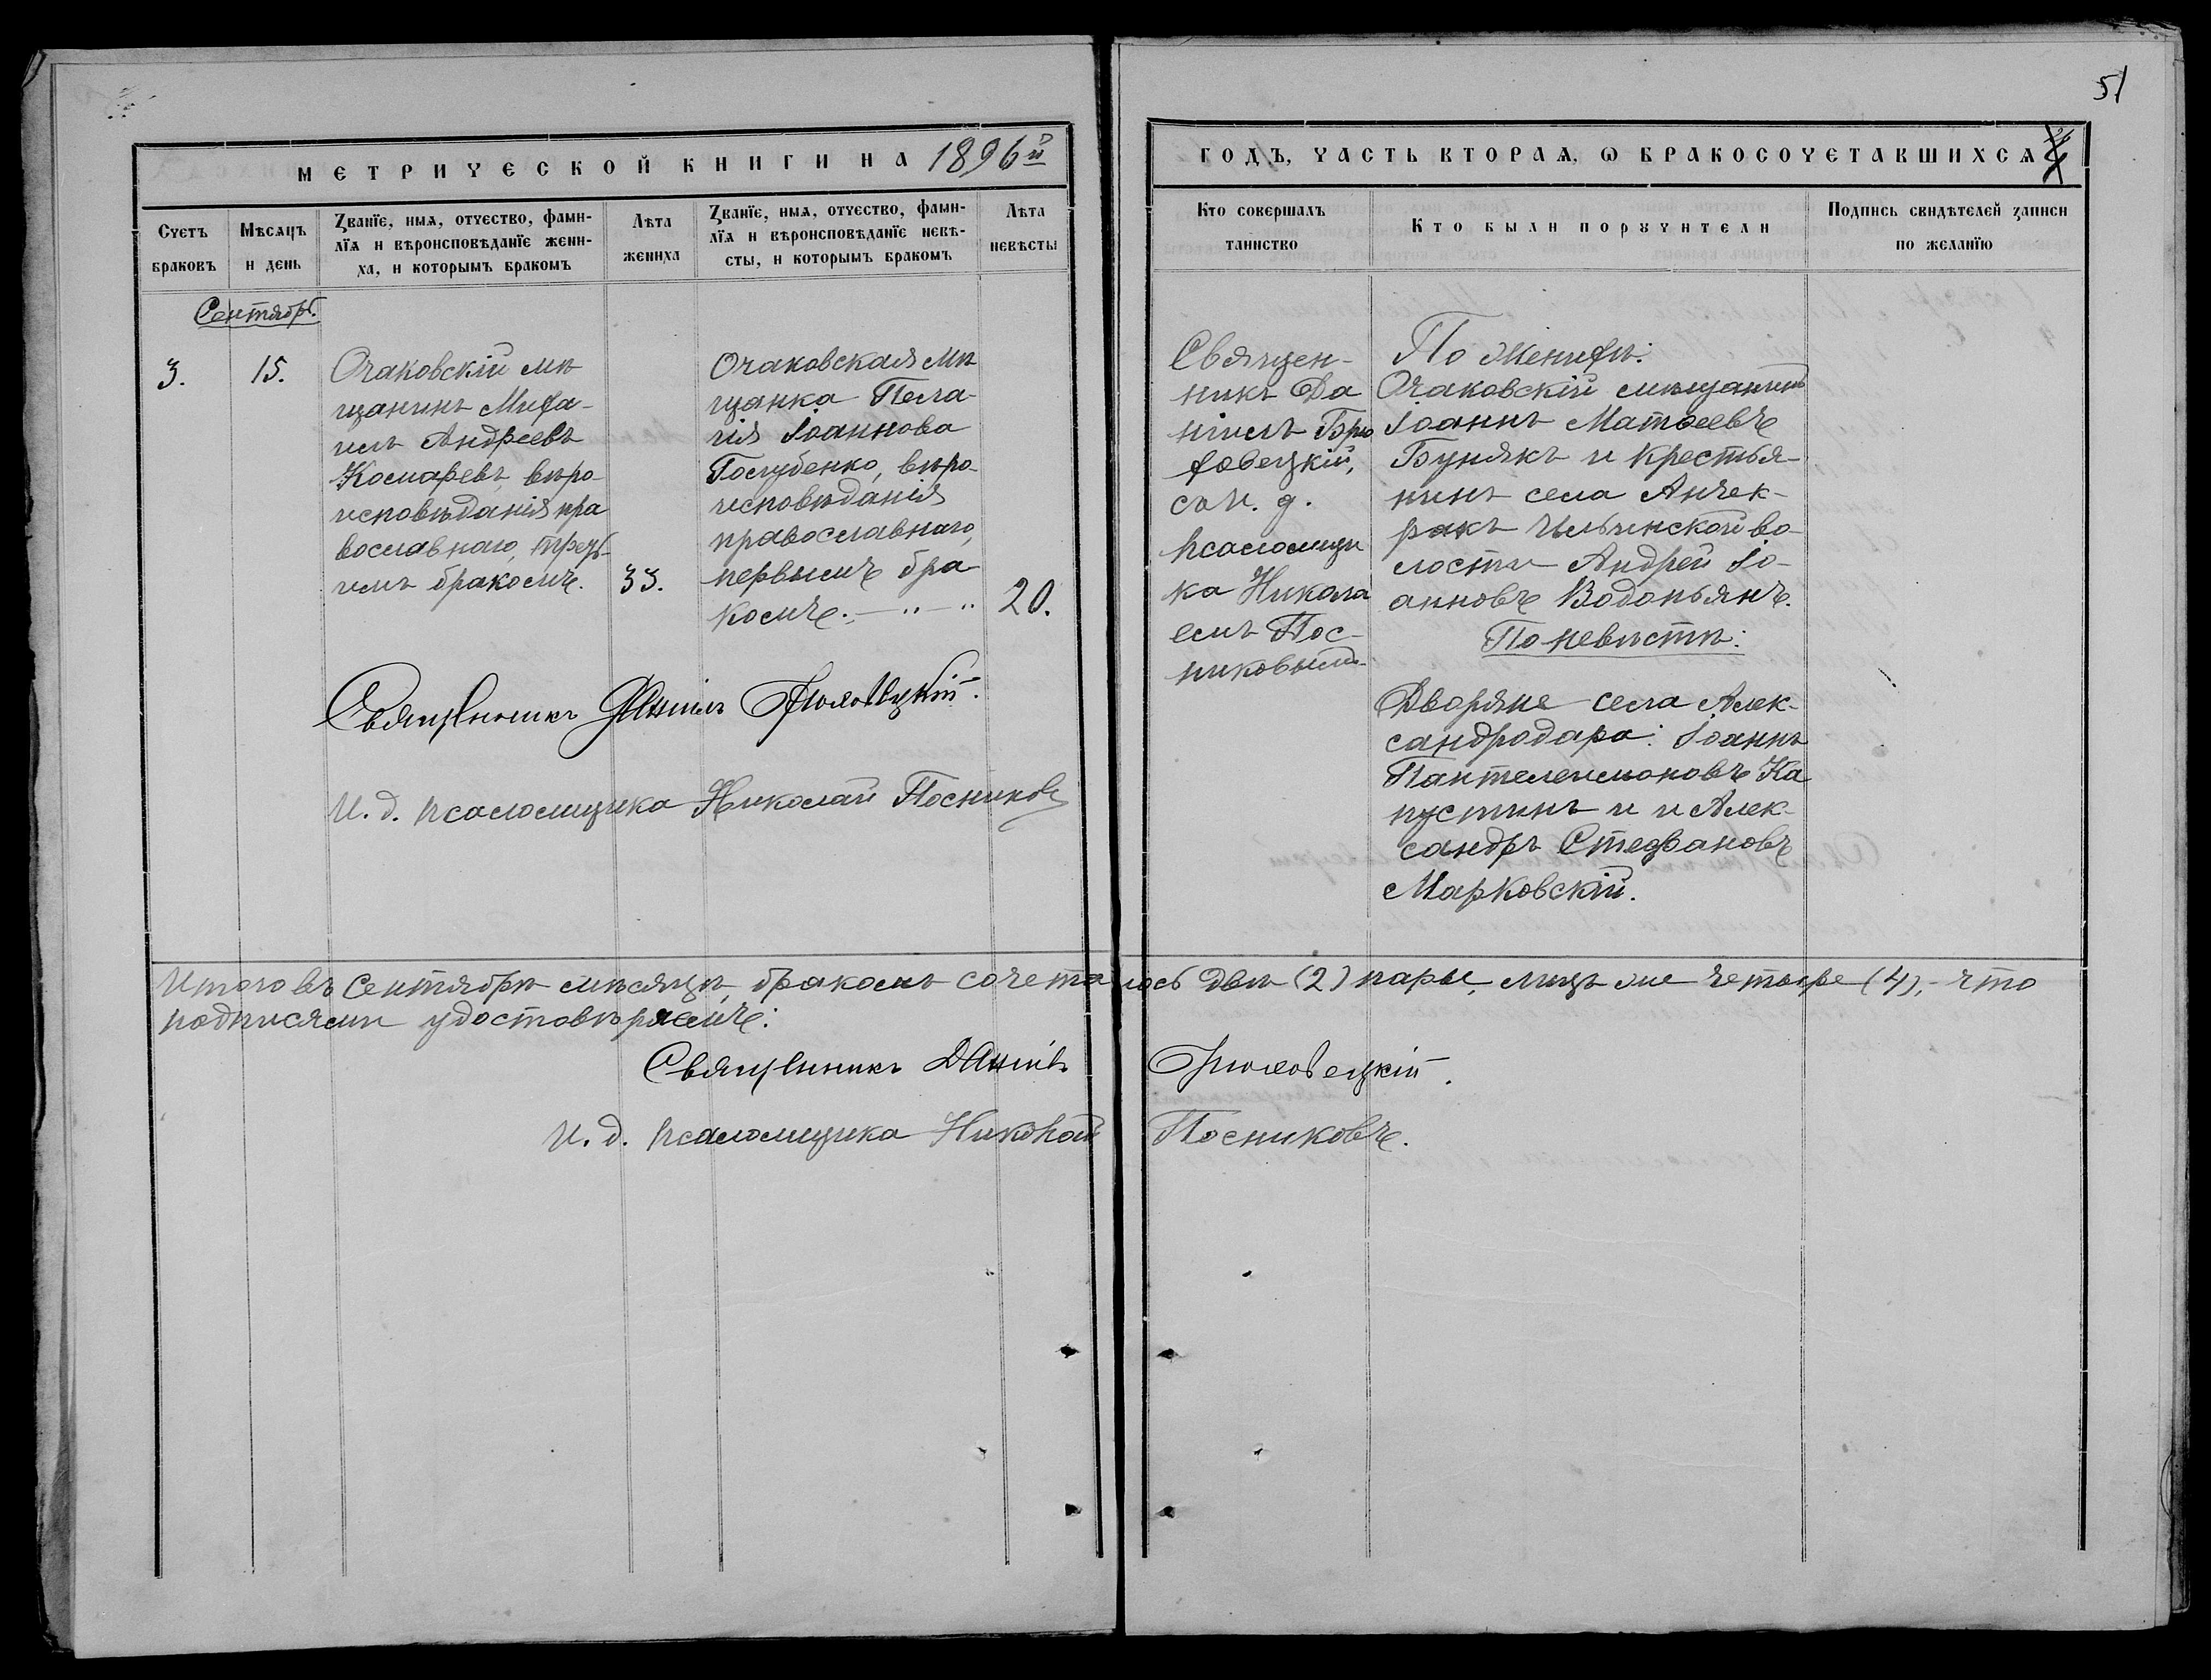 51
МЕТРИЧЕСКОЙ КНИГИ НА 1896й
ГОДЪ, ЧАСТЬ ВТОРАѦ, Ѡ БРАКОСОЧЕТАВШИХСѦ
Счетъ браковъ
Мѣсѧцъ и день
Званїе, имѧ, отчество, фами-
лїѧ и вѣроисповѣданїе жени-
ха, и которымъ бракомъ
Лѣта жениха
Званїе, имѧ, отчество, фами-
лїѧ и вѣроисповѣданїе невѣ-
сты, и которымъ бракомъ
Лѣта невѣсты
Кто совершалъ таинство
Кто были порꙋчители
Подпись свидѣтелей записи
по желанїю
Сентябрь.
3.
15.
Очаковскій мѣ
щанинъ Миха-
илъ Андреевъ
Комаревъ, вѣро-
исповѣданія пра
вославнаго, треть-
имъ бракомъ.
33.
Очаковская мѣ
щанка Пела-
гія Іоаннова
Голубенко, вѣро-
исповѣданія
православнаго,
первымъ бра
комъ.
20.
Священ-
никъ Да
ніилъ Брю
ховецкій,
съ и. д.
псаломщи
ка Никола
емъ Пос-
никовымъ
По женихѣ:
Очаковскій мѣщанинъ
Іоаннъ Матѳеевъ
Бунякъ и крестья-
нинъ села Анчек-
ракъ Ильинской во-
лости Андрей Іо-
анновъ Водопьянъ.
По невѣстѣ:
Дворяне села Алек-
сандродара: Іоаннъ
Пантелеимоновъ Ка
пустинъ и и Алек-
сандръ Стефановъ
Марковскій.
Священникъ Даніилъ Брюховецкій.
И. д. псаломщика Николай Посниковъ
Итого въ Сентябрѣ мѣсяцѣ, бракомъ сочеталось двѣ (2) пары, лицъ же четыре (4), - что
подписями удостовѣряемъ:
Священникъ Даніилъ Брюховецкій.
И. д. псаломщика Николай Посниковъ.